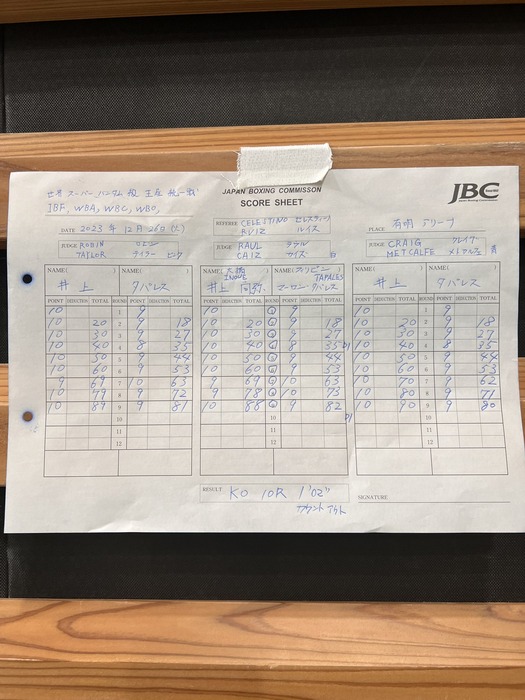 世界 スーパーバンタム級 王座 統一戦
IBF, WBA, WBC, WBO,
JAPAN BOXING COMMISSON
SCORE SHEET
JBC
DATE 2023 年 12 月 26日 (火)
REFEREE CELESTINO セレスティーノ
RUIZ ルイス
PLACE 有明 アリーナ
JUDGE ROBIN ロビン
TAILOR テイラー ピンク
JUDGE RAUL ラウル
CAIZ カイズ 白
JUDGE CRAIG クレイグ
METCALFE メトカルフェ 青
NAME( ) NAME( ) NAME( 大橋 ) NAME( フィリピン ) NAME( ) NAME( )
井上 タパレス INOUE 井上 尚弥 TAPALES マーロン・タパレス 井上 タパレス
POINT DEDUCTION TOTAL ROUND POINT DEDUCTION TOTAL POINT DEDUCTION TOTAL ROUND POINT DEDUCTION TOTAL POINT DEDUCTION TOTAL ROUND POINT DEDUCTION TOTAL
10 1 9 10 9 10 1 9
10 20 2 9 18 10 20 9 18 10 20 2 9 18
10 30 3 9 27 10 30 9 27 10 30 3 9 27
10 40 4 8 35 10 40 8 35 10 40 4 8 35
10 50 5 9 44 10 50 9 44 10 50 5 9 44
10 60 6 9 53 10 60 9 53 10 60 6 9 53
9 69 7 10 63 9 69 10 63 10 70 7 9 62
10 79 8 9 72 9 78 10 73 10 80 8 9 71
10 89 9 9 81 10 88 9 82 10 90 9 9 80
10 10 10
11 11 11
12 12 12
RESULT KO 10R 1'02"
カウント アウト
SIGNATURE